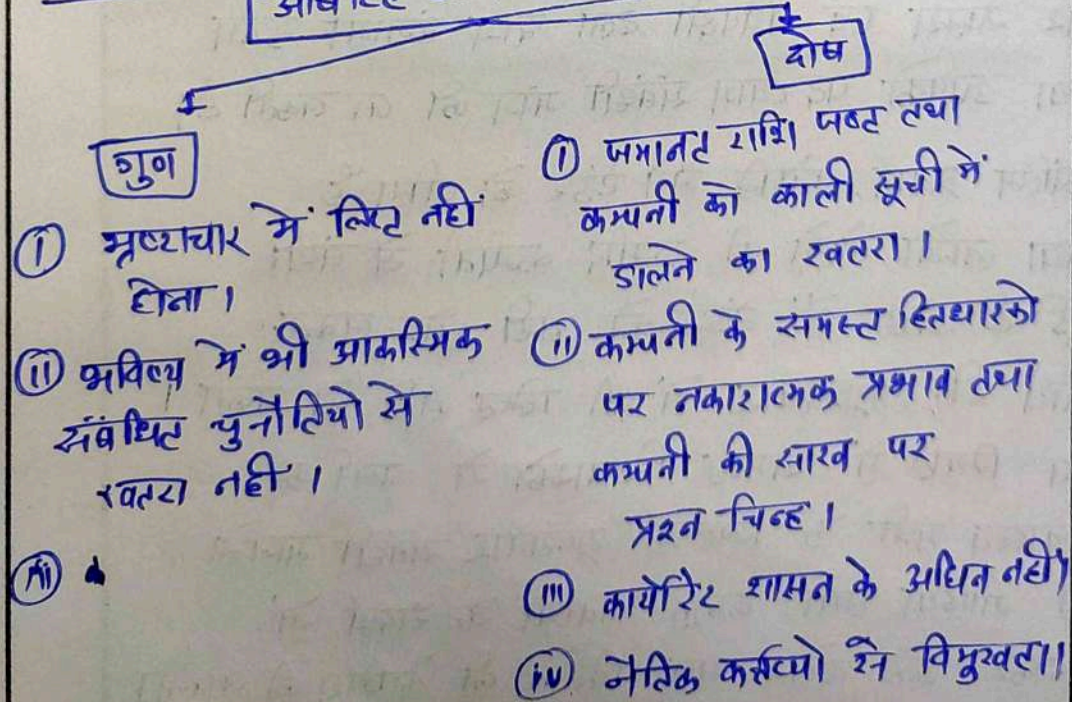 दोष
गुण
① भ्रष्टाचार में लिप्ट नहीं
होना।
② भविष्य में भी आकस्मिक
संबंधित चुनौतियो से
खतरा नहीं।
① जमानट राशि जष्ट तथा
कम्पनी को काली सूची में
डालने का खतरा।
(ii) कम्पनी के समस्ट हितधारको
पर नकारात्मक प्रभाव तथा
कम्पनी की साख पर
प्रश्न चिन्ह।
(iii) कार्पोरेट शासन के अधिन नहीं।
(iv) नैतिक कर्त्तव्यो से विमुखटा।